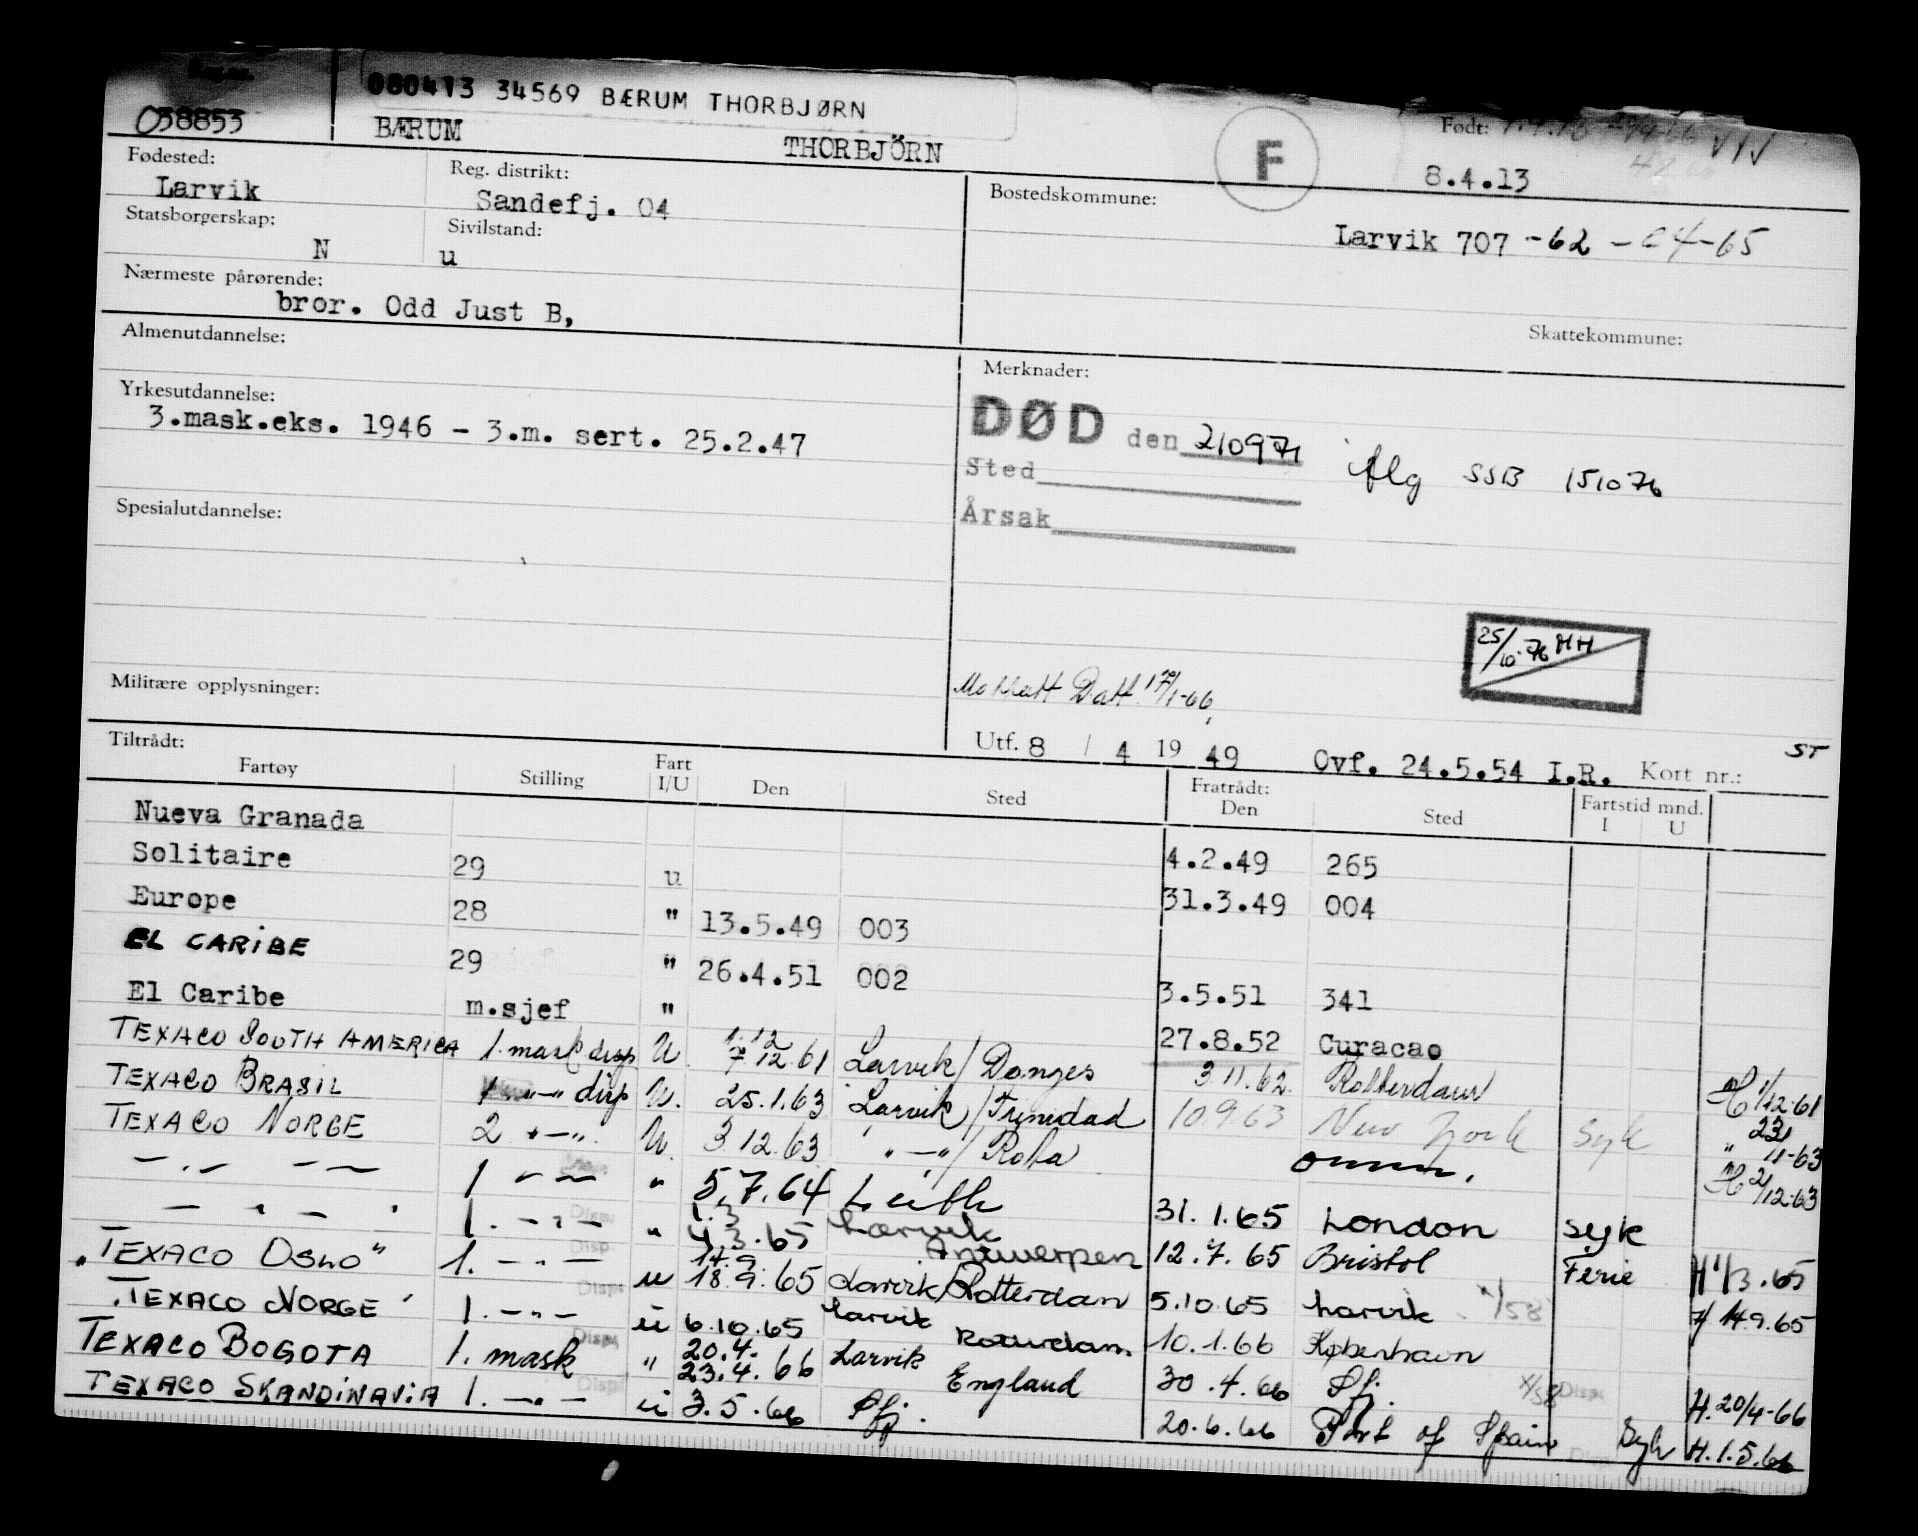 Reg.nr.
038853
080413 34569 BÆRUM THORBJØRN
BÆRUM THORBJÖRN
F
Født:
8.4.13
Fødested:
Larvik
Reg. distrikt:
Sandefj. 04
Bostedskommune:
Larvik 707 -62 - 04-65
Statsborgerskap:
N
Sivilstand:
u
Nærmeste pårørende:
bror. Odd Just B,
Skattekommune:
Almenutdannelse:
Merknader:
Yrkesutdannelse:
3.mask.eks. 1946 - 3.m. sert. 25.2.47
DØD den 210971 iflg SSB 151076
Sted
Årsak
Spesialutdannelse:
25/10-76 HH
Militære opplysninger:
Mottatt Datt. 17/1-66
Utf. 8 / 4 19 49 Ovf. 24.5.54 I.R. Kort nr.: ST
Tiltrådt:
Fartøy Stilling Fart I/U Den Sted Fratrådt: Den Sted Fartstid mnd. I U
Nueva Granada 4.2.49 265
Solitaire 29 u 31.3.49 004
Europe 28 " 13.5.49 003
EL CARIBE 29 " 26.4.51 002 3.5.51 341
El Caribe m.sjef " 27.8.52 Curacao
TEXACO SOUTH AMERICA 1. mask disp U. 1.12 7.12.61 Larvik/Donges 3.11.62. Rotterdam H 1/12-61
TEXACO BRASIL 1 -"- disp U. 25.1.63 Larvik/Trinidad 10.9.63 New York Syk " 23/11-63
TEXACO NORGE 2 -"- U. 3.12.63 " -"-/ Omm. H 2/12-63
-"- -"- 1 -"- " 5.7.64 Leith 31.1.65 London syk
- " - " 1. -"- " 1.3 4.3.65 Larvik Antwerpen 12.7.65 Bristol Ferie H 1/3.65
"TEXACO OSLO" 1. -"- u 17.9. 18.9.65 Larvik/Rotterdam 5.10.65 Larvik X/58 H 14.9.65
"TEXACO NORGE" 1. -"- u 6.10.65 Larvik Rotterdam 10.1.66 København
TEXACO BOGOTA 1. mask " 20.4. 23.4.66 Larvik England 30.4.66 Sfj. X/58 Disp. H. 20/4-66
TEXACO SKANDINAVIA 1. -"- u 3.5.66 Sfj. 20.6.66 Port of Spain Syk H. 1.5.66